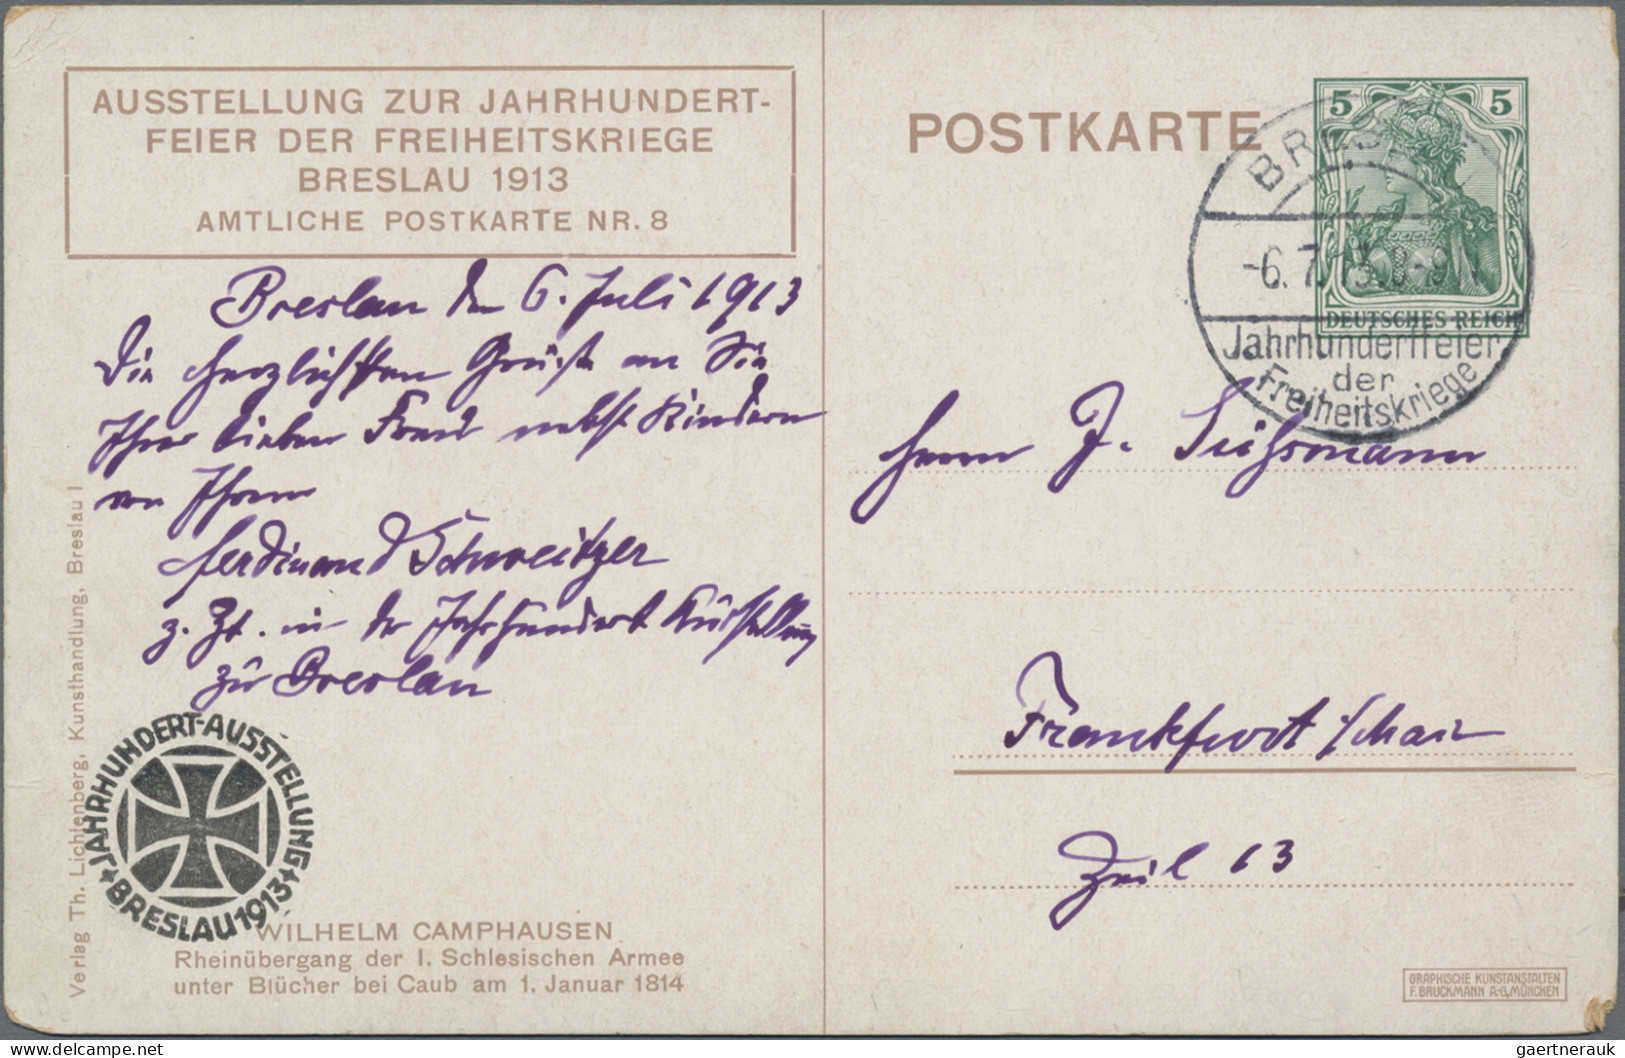 AUSSTELLUNG ZUR JAHRHUNDERT-
FEIER DER FREIHEITSKRIEGE
BRESLAU 1913
AMTLICHE POSTKARTE NR. 8
Breslau den 6. Juli 1913
Die herzlichsten Grüße an Sie
Ihrer lieben Frau nebst Kindern
von Ihrem
Ferdinand Schweitzer
z. Zt. in der Jahrhundert Ausstellung
zu Breslau
JAHRHUNDERT-AUSSTELLUNG
BRESLAU 1913
Verlag Th. Lichtenberg, Kunsthandlung, Breslau I
WILHELM CAMPHAUSEN
Rheinübergang der I. Schlesischen Armee
unter Blücher bei Caub am 1. Januar 1814
POSTKARTE
5 5
DEUTSCHES REICH
-6.7.13.8-9
Jahrhundertfeier
der
Freiheitskriege
Herrn J. Süßmann
Frankfurt /Main
Zeil 13
GRAPHISCHE KUNSTANSTALTEN
F. BRUCKMANN A-G, MÜNCHEN
www.delcampe.net
gaertnerauk